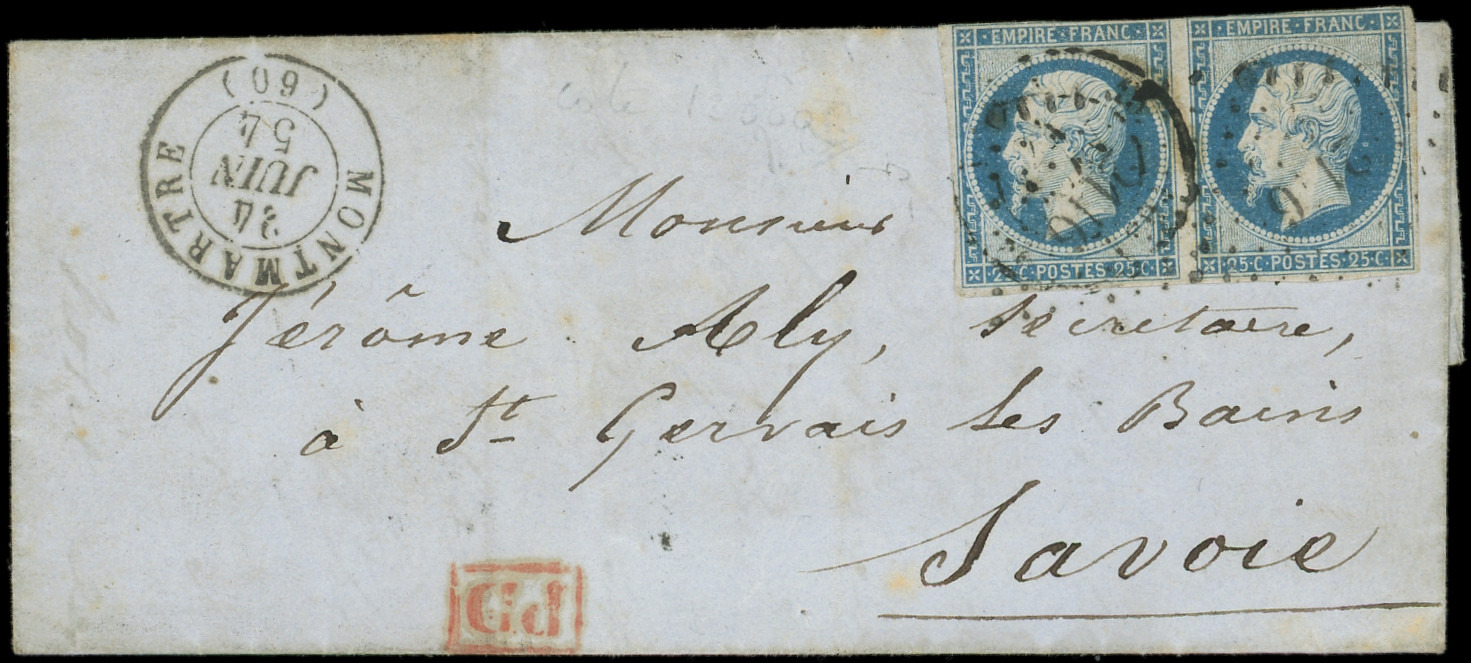 MONTMARTRE (60)
24
JUIN
54
EMPIRE FRANC
25·C·POSTES·25·C
EMPIRE FRANC
25·C·POSTES·25·C
Monsieur
Jérôme Aly, secretaire,
à St Gervais les Bains
Savoie
PD